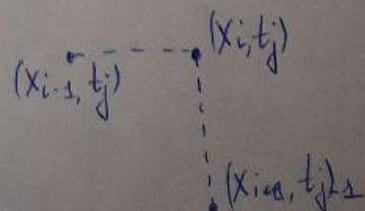 (xi, tj)
(xi-1, tj)
(xi+1, tj)-1